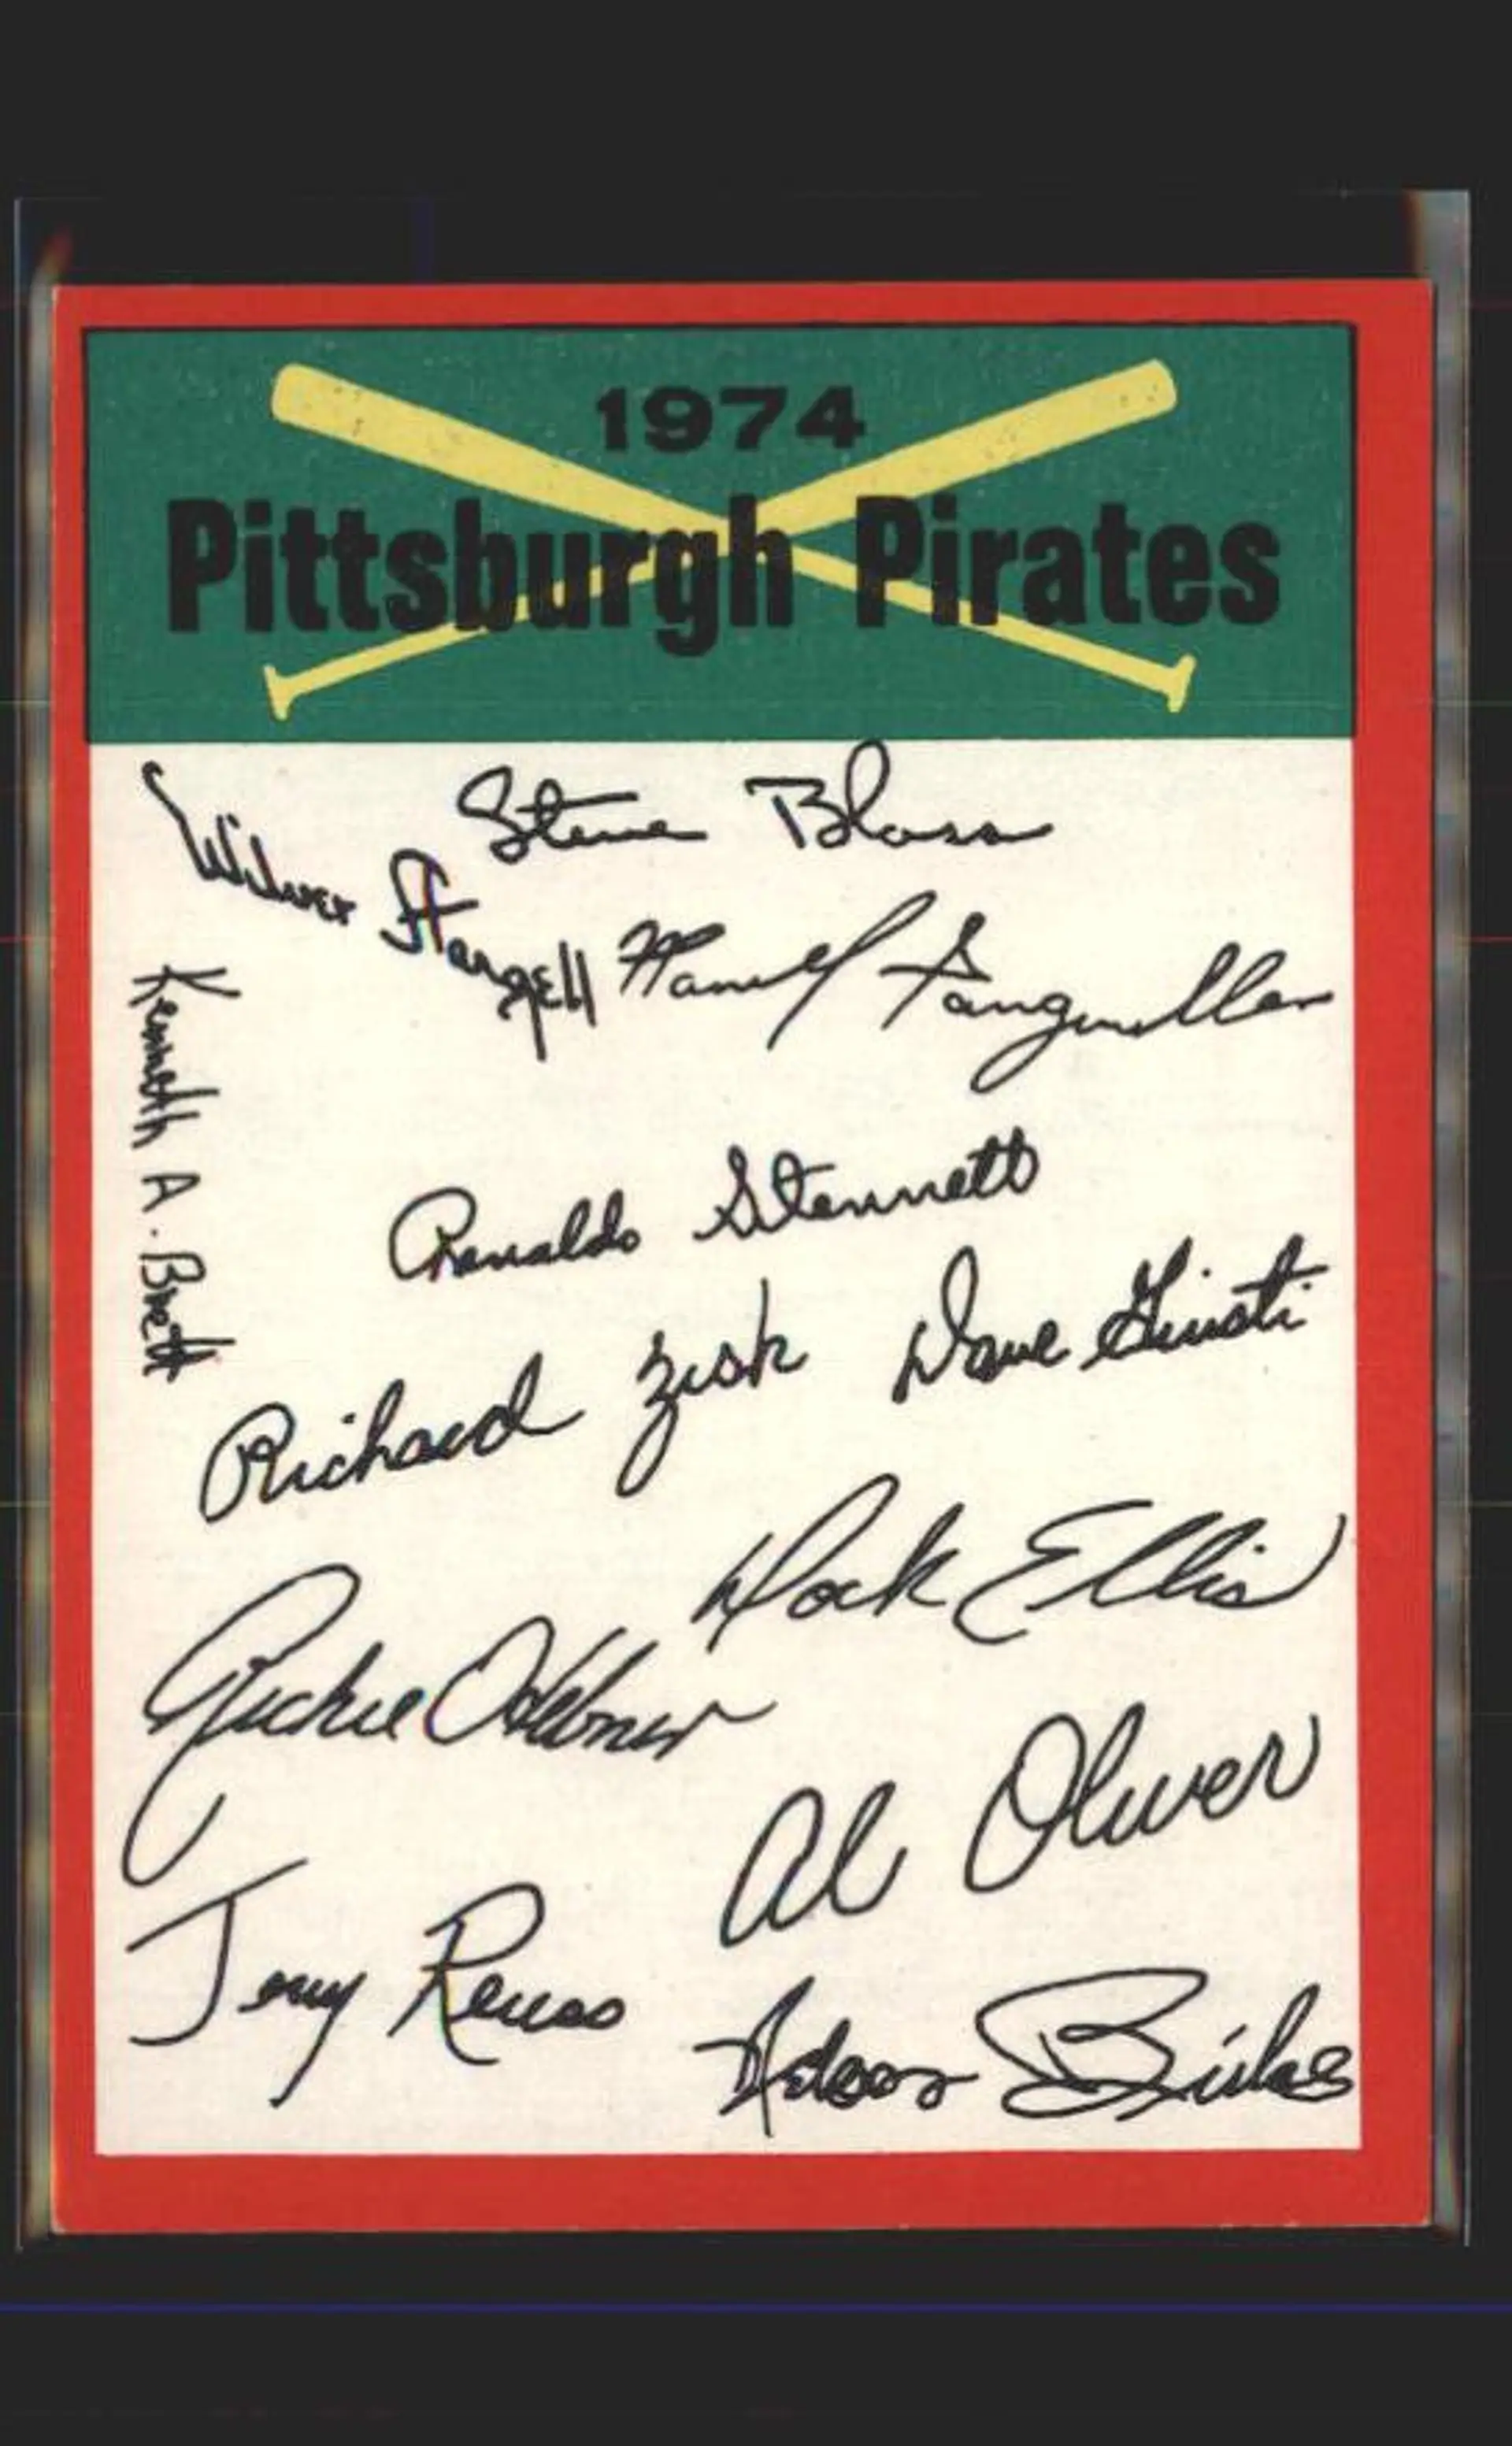 1974
Pittsburgh Pirates
Steve Blass
Wilver Stargell
Manuel Sanguillen
Kenneth A. Brett
Renaldo Stennett
Richard Zisk
Dave Giusti
Dock Ellis
Richie Hebner
Al Oliver
Jerry Reuss
Nelson Briles